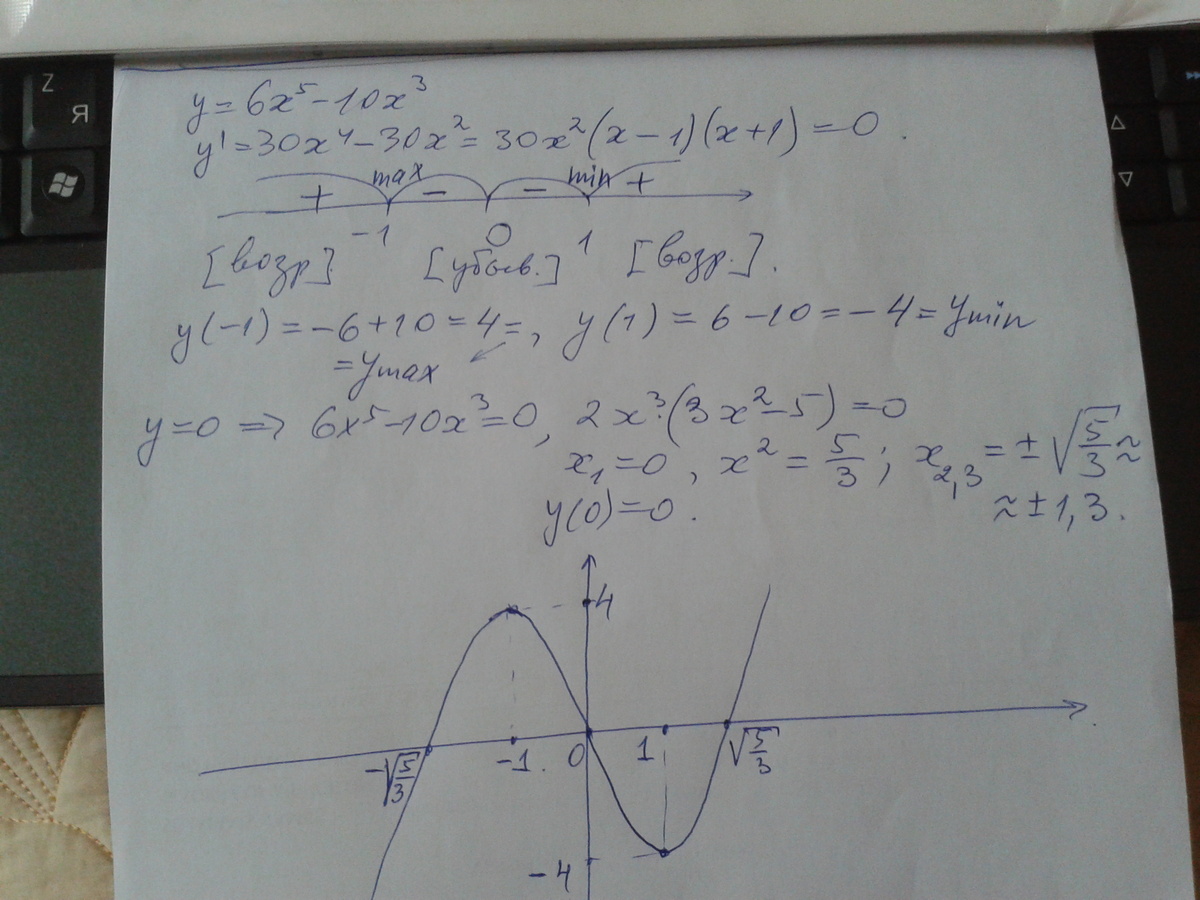 Z
Я
y = 6x⁵ - 10x³
y' = 30x⁴ - 30x² = 30x²(x - 1)(x + 1) = 0.
+ max - - min +
-1 0 1
[возр]. [убыв.] [возр.].
y(-1) = -6 + 10 = 4 =, y(1) = 6 - 10 = -4 = ymin
= ymax
y = 0 => 6x⁵ - 10x³ = 0, 2x³·(3x² - 5) = 0
x₁ = 0, x² = 5/3; x₂,₃ = ± √(5/3) ≈
≈ ± 1,3.
y(0) = 0.
4
-√(5/3) -1. 0 1 √(5/3)
-4